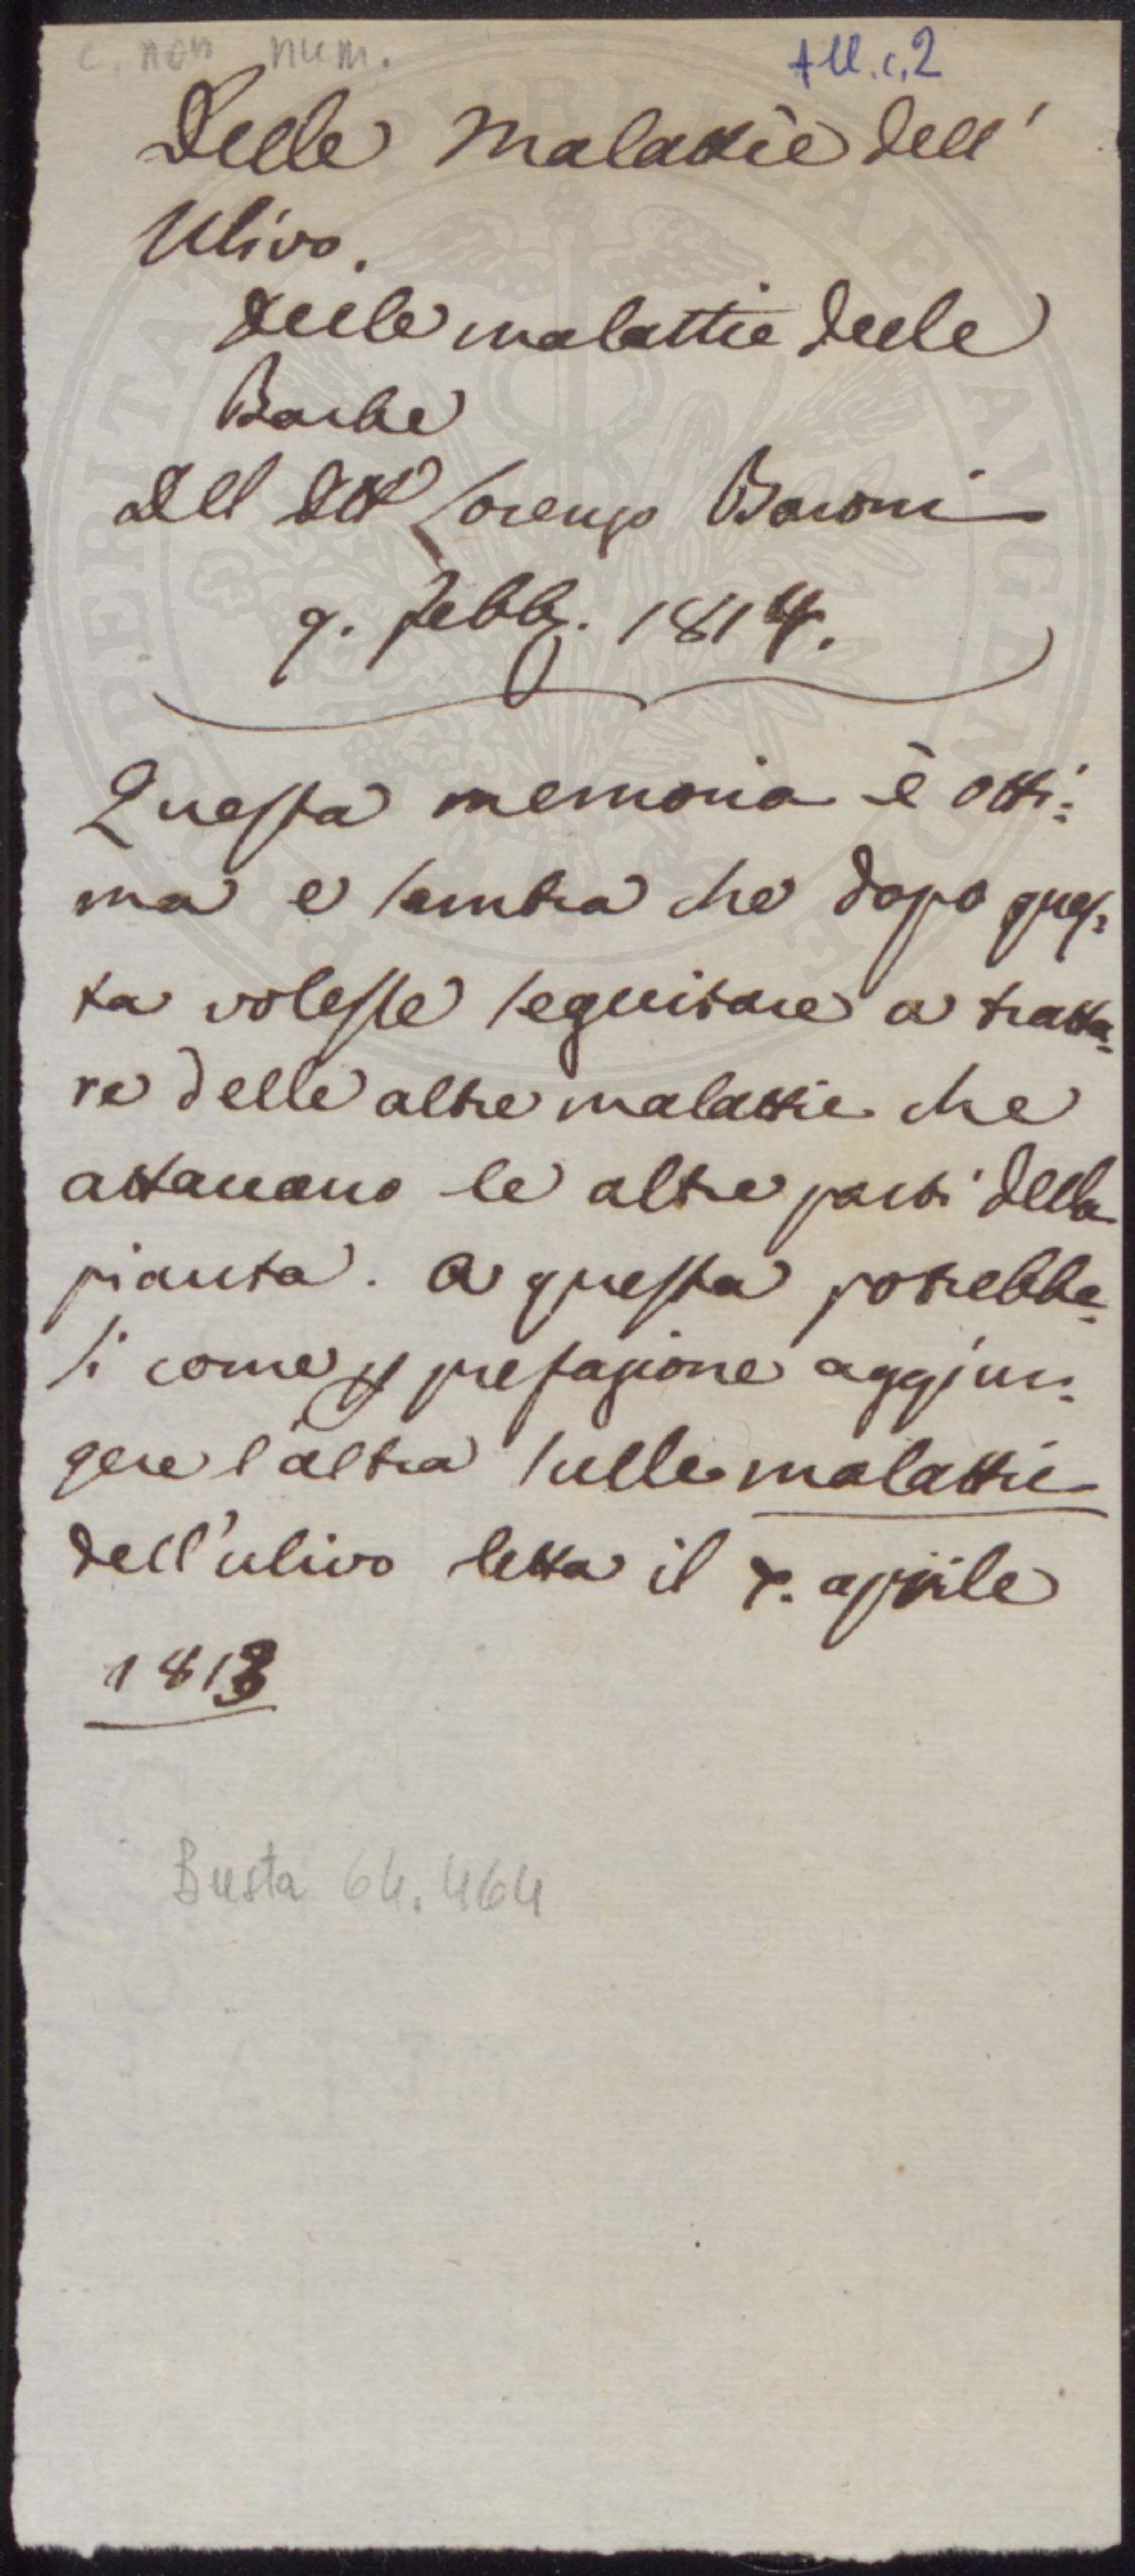 c. non num.
All. c. 2
Delle Malattie dell'
Ulivo.
Delle malattie delle
Barbe
Del Dott Lorenzo Baroni
9. Febb. 1814.
Questa memoria è otti=
ma e sembra che dopo ques=
ta volesse seguitare a tratta=
re delle altre malattie che
attaccano le altre parti della
pianta. A questa potrebbe=
si come prefazione aggiun=
gere l'altra sulle malattie
dell'ulivo letta il 7. aprile
1813
Busta 64.464